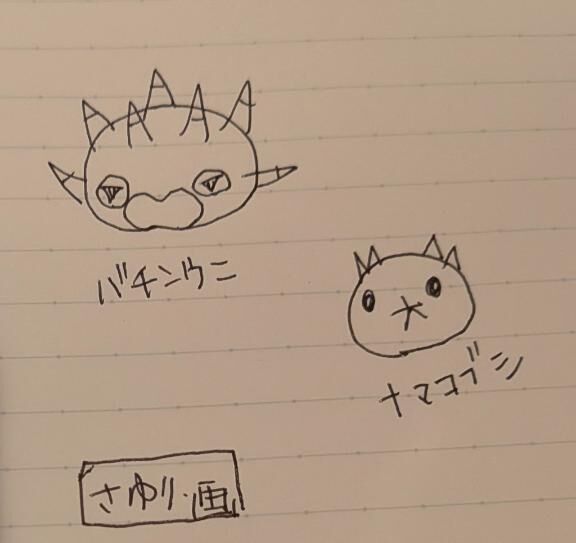 バチンウニ
ナマコブシ
さゆり・画